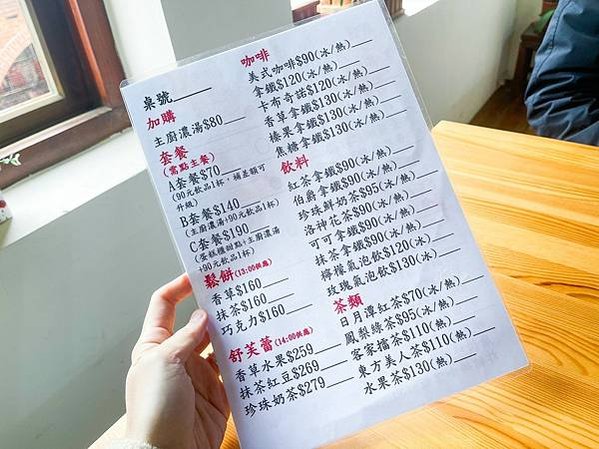 桌號
加購
主廚濃湯$80
套餐
(需點主餐)
A套餐$70
(90元飲品1杯,補差額可
升級)
B套餐$140
(主廚濃湯+90元飲品1杯)
C套餐$190
(蛋糕櫃甜點+主廚濃湯
+90元飲品1杯)
鬆餅(13:00供應)
香草$160
抹茶$160
巧克力$160
舒芙蕾(14:00供應)
香草水果$259
抹茶紅豆$269
珍珠奶茶$279
咖啡
美式咖啡$90(冰/熱)
拿鐵$120(冰/熱)
卡布奇諾$120(冰/熱)
香草拿鐵$130(冰/熱)
榛果拿鐵$130(冰/熱)
焦糖拿鐵$130(冰/熱)
飲料
紅茶拿鐵$90(冰/熱)
伯爵拿鐵$90(冰/熱)
珍珠鮮奶茶$95(冰/熱)
洛神花茶$90(冰/熱)
可可拿鐵$90(冰/熱)
抹茶拿鐵$90(冰/熱)
檸檬氣泡飲$120(冰)
玫瑰氣泡飲$130(冰)
茶類
日月潭紅茶$70(冰/熱)
鳳梨綠茶$95(冰/熱)
客家擂茶$110(熱)
東方美人茶$110(熱)
水果茶$130(熱)